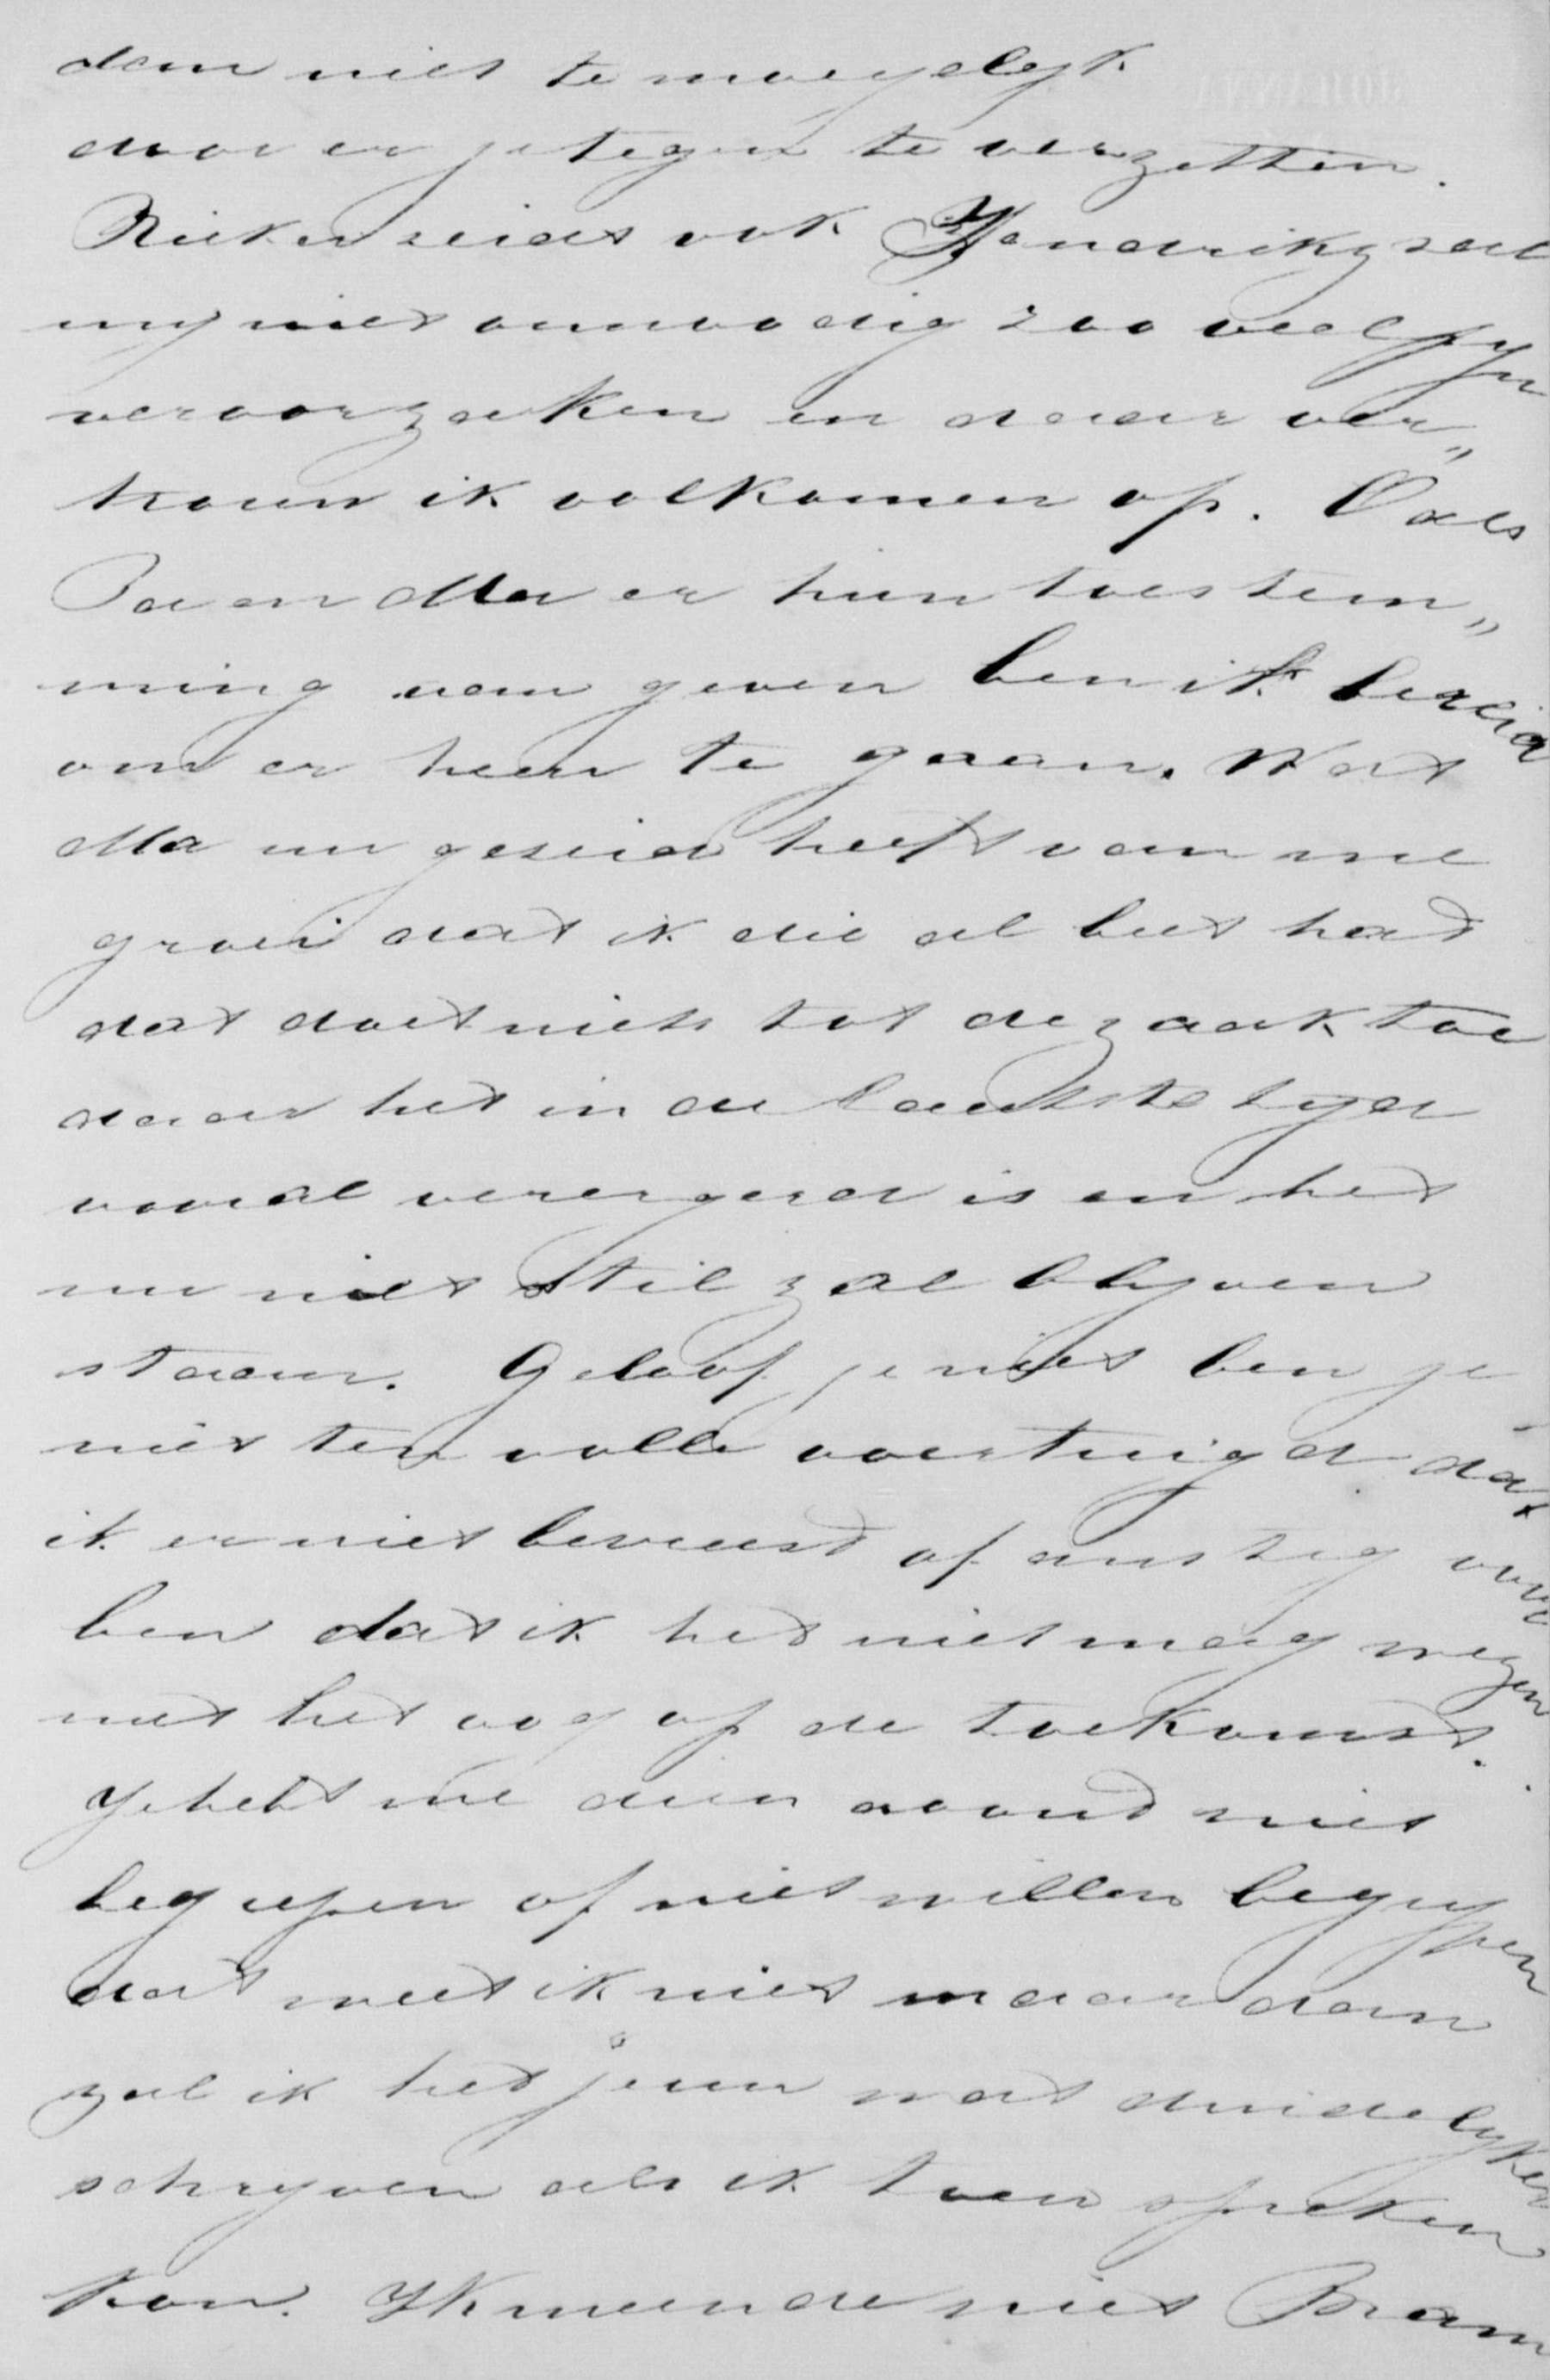 dan niet te moeyelyk
door er je tegen te verzetten.
Rieken zeide ook Hendrik zal
my niet onnoodig zoo veel pyn
veroorzaken en daar ver„
trouw ik volkomen op. Dus als
Pa en Ma er hun toestem„
ming aan geven ben ik bereid
om er heen te gaan. Wat
Ma nu gezeid heeft van me
groei dat ik die al lust had
dat doet niets tot de zaak toe
daar het in de laatste tyd
vooral verergerd is en het
nu niet stil zal blyven
staan. Geloof je niet ben je
niet ten volle overtuigd dat
ik er niet bevreesd of angstig voor
ben dat ik het niet mag wegen
met het oog op de toekomst.
Je hebt me dien avond niet
begrepen of niet willen begrypen
dat weet ik niet maar dan
zal ik het jouw wat duidelyker
schryven als ik toen spreken
kon. Ik meende niet Bram